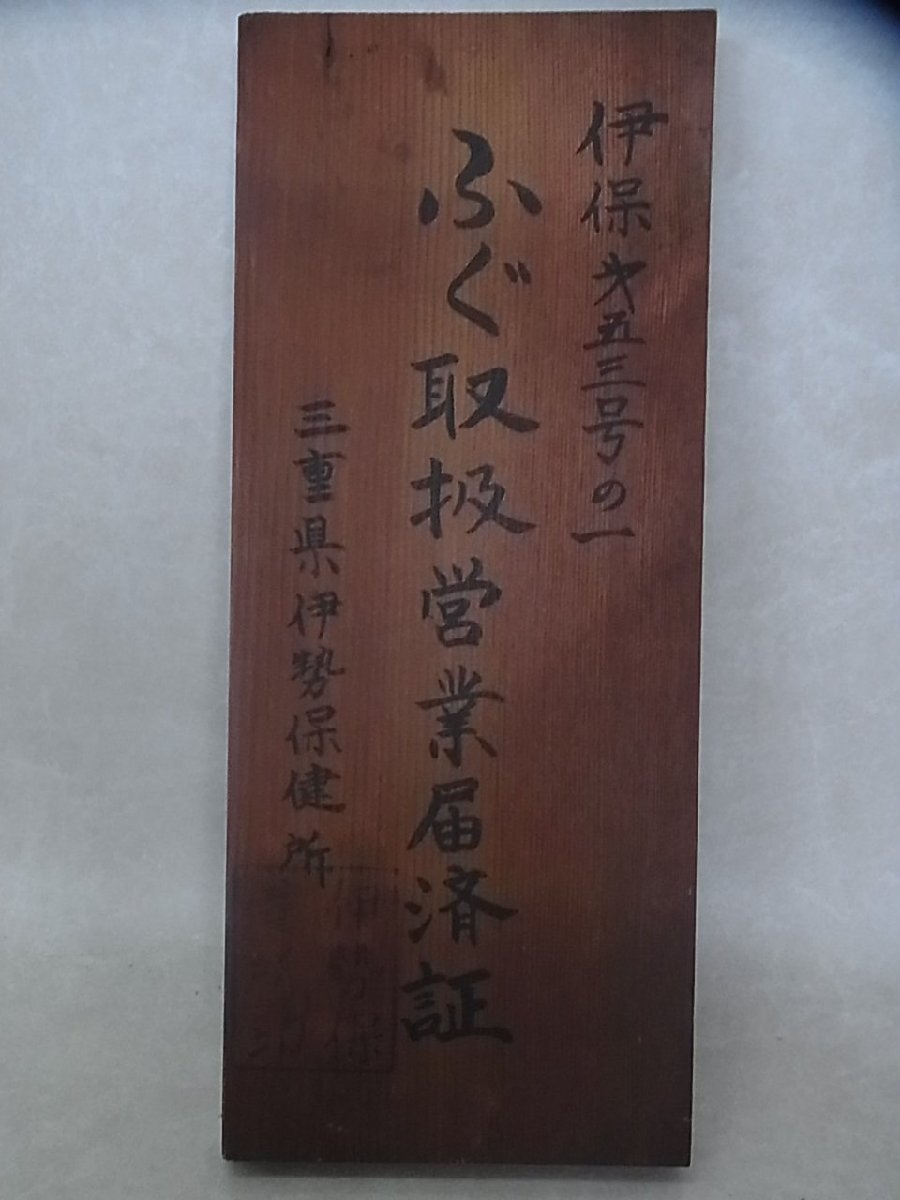 伊保才五三号の一
ふぐ取扱営業届済証
三重県伊勢保健所
伊勢保